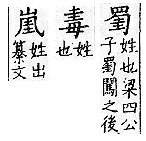 蜀姓也梁四公
子蜀闖之後
毒姓
也
嵐姓出
纂文